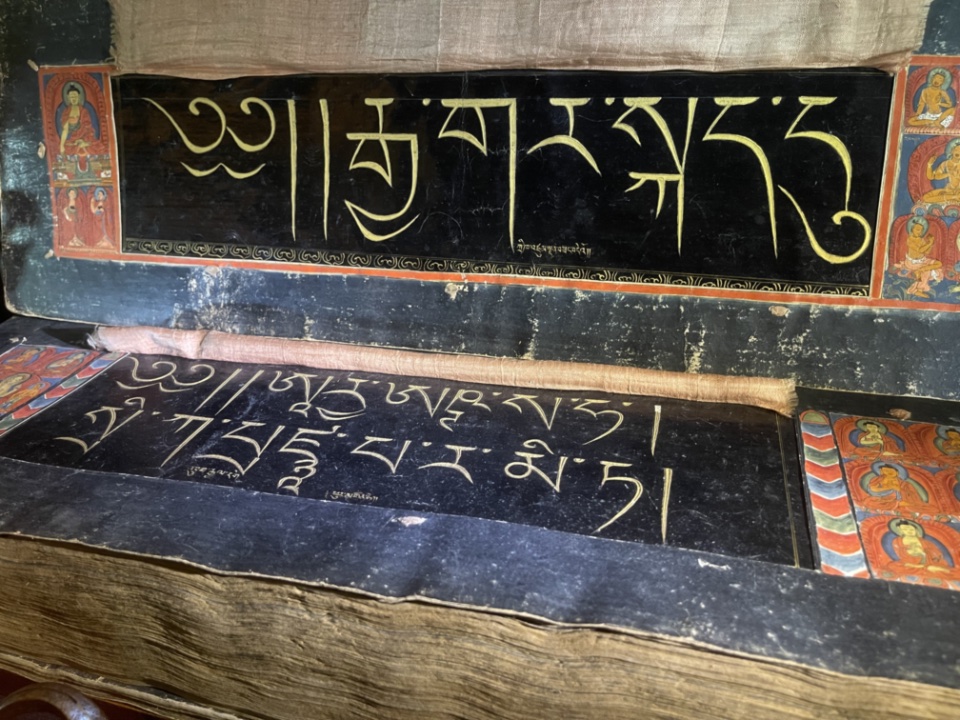 ༄༅།།རྒྱ་གར་སྐད་དུ
༄༅།།ཨཱརྱ་ཨཥྚ་ས་ཧ་།
སྲི་ཀ་པྲཛྙཱ་པ་ར་མི་ཏ།